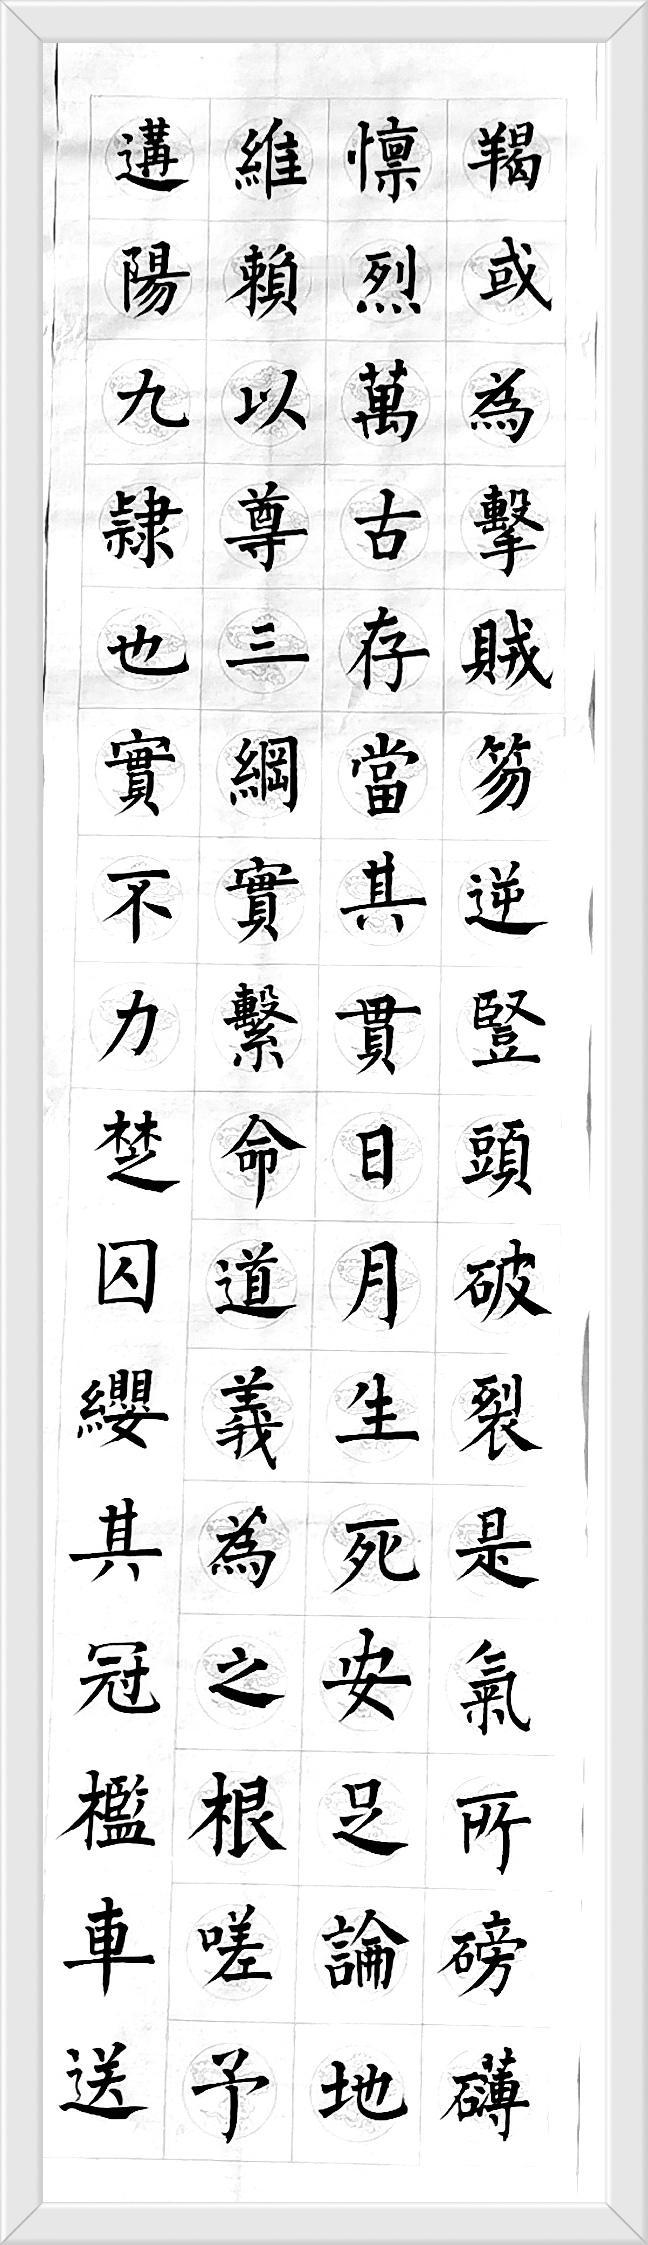 羯或為擊賊笏逆豎頭破裂是氣所磅礴
懔烈萬古存當其貫日月生死安足論地
維賴以尊三綱實繫命道義為之根嗟予
遘陽九隷也實不力楚囚纓其冠檻車送